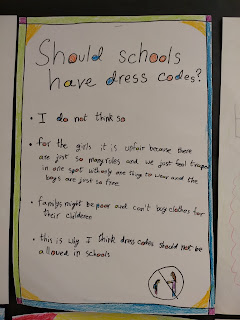 Should schools
have dress codes?
• I do not think so
• for the girls it is unfair because there
are just so many rules and we just feel traped
in one spot with only one thing to wear and the
boys are just so free.
• familys might be poor and can't buy clothes for
their children
• this is why I think dress codes should not be
allowed in schools